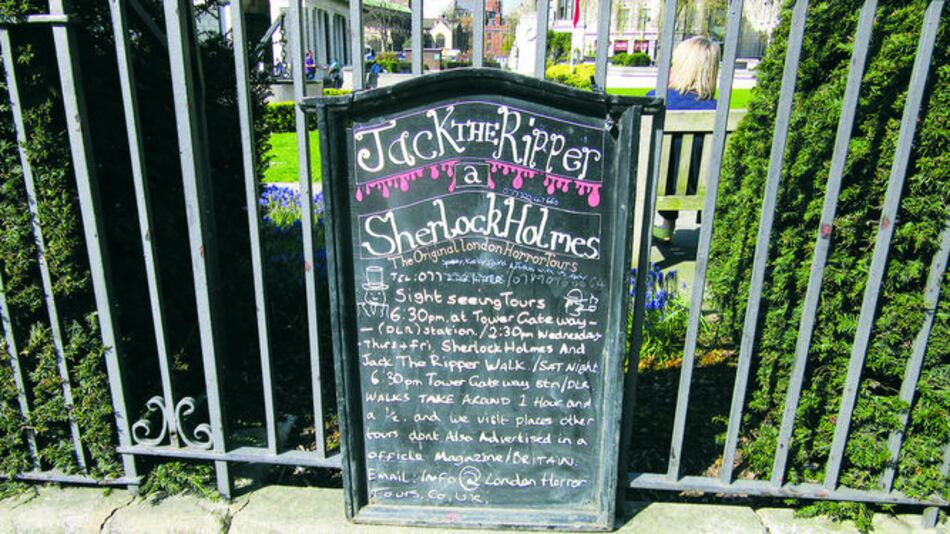 Jack THE Ripper
a
Sherlock Holmes
The Original London Horror Tours
TEL: 077
Sight seeing Tours
6:30pm, at Tower Gateway -
- (DLR) station. / 2:30pm Wednesday
- Thurs + fri, Sherlock Holmes And
Jack The Ripper Walk. / SAT Night
6:30pm Tower Gateway stn/DLR
WALKS TAKE AROUND 1 Hour and
a ½. and we visit places other
tours dont Also Advertised in a
officle Magazine/BRITAIN.
Email: /INFO@London Horror
Tours.Co.UK.